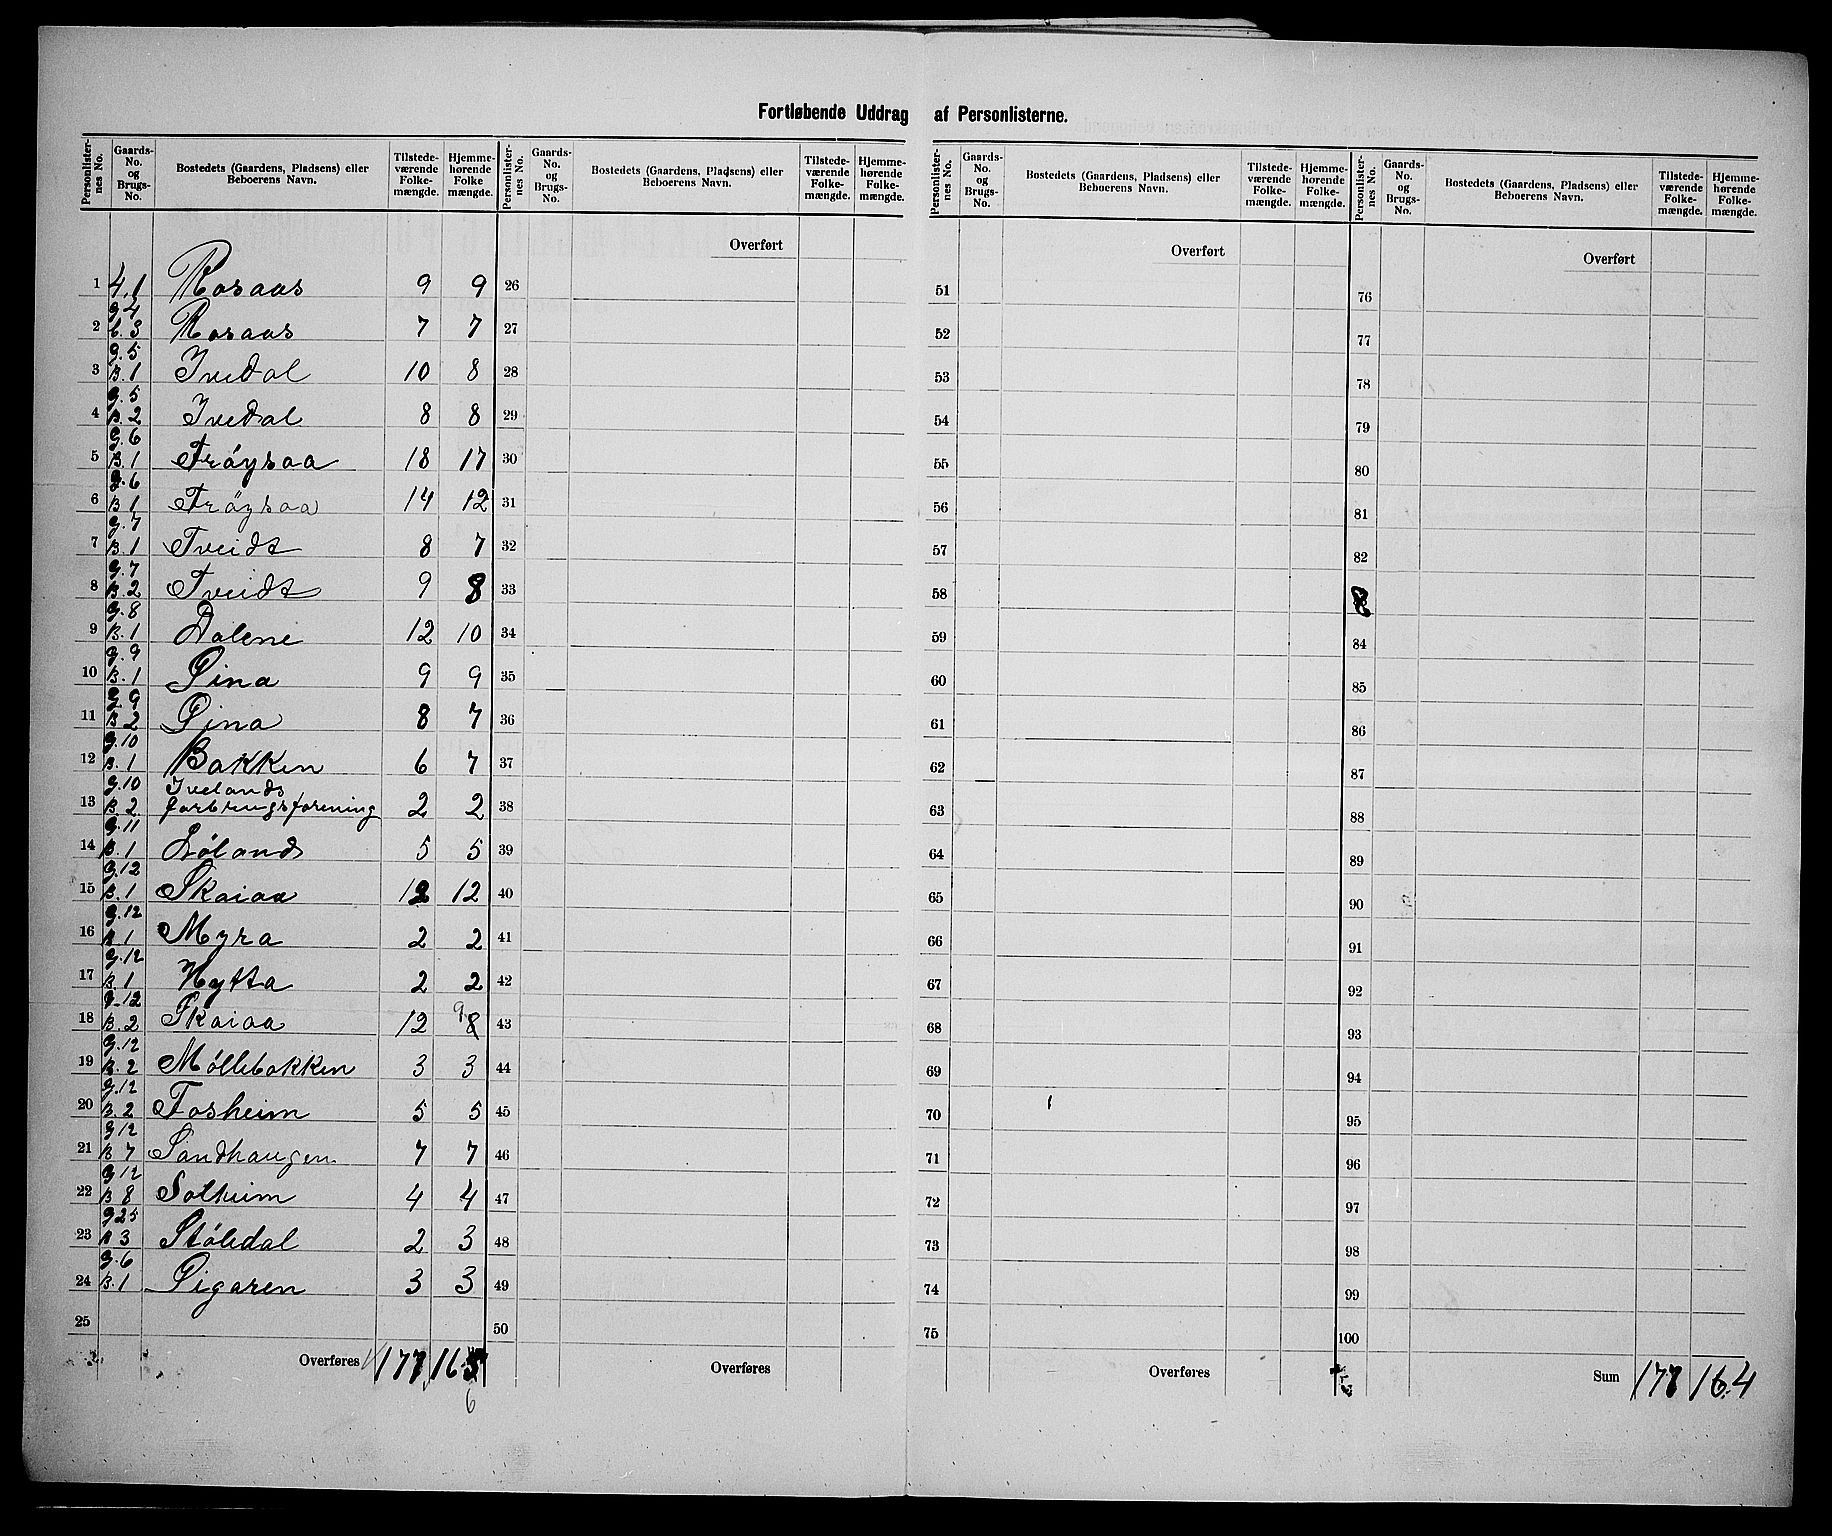 Fortløbende Uddrag af Personlisterne.
Personlister-nes No. Gaards-No. og Brugs-No. Bostedets (Gaardens, Pladsens) eller Beboerens Navn. Tilstede-værende Folke-mængde. Hjemme-hørende Folke mængde. Personlister-nes No. Gaards-No. og Brugs-No. Bostedets (Gaardens, Pladsens) eller Beboerens Navn. Tilstede-værende Folke-mængde. Hjemme-hørende Folke-mængde. Personlister-nes No. Gaards-No. og Brugs-No. Bostedets (Gaardens, Pladsens) eller Beboerens Navn. Tilstede-værende Folke-mængde. Hjemme-hørende Folke-mængde. Personlister-nes No. Gaards-No. og Brugs-No. Bostedets (Gaardens, Pladsens) eller Beboerens Navn. Tilstede-værende Folke-mængde. Hjemme-hørende Folke-mængde.
Overført Overført Overført
1 4.1 Rosaas 9 9 26 51 76
2 g4 b.3 Rosaas 7 7 27 52 77
3 g.5 B.1 Ivedal 10 8 28 53 78
4 g.5 B.2 Ivedal 8 8 29 54 79
5 g.6 B.1 Frøysaa 18 17 30 55 80
6 g.6 B1 Frøysaa 14 12 31 56 81
7 g.7 B.1 Tveidt 8 7 32 57 82
8 g.7 B.2 Tveidt 9 8 33 58
9 g.8 B.1 Dalene 12 10 34 59 84
10 g.9 B.1 Gina 9 9 35 60 85
11 g.9 B2 Gina 8 7 36 61 86
12 g.10 B.1 Bakken 6 7 37 62 87
13 g.10 B.2 Ivelands forbrugsforening 2 2 38 63 88
14 g.11 B.1 Løland 5 5 39 64 89
15 g.12 B.1 Skaiaa 12 12 40 65 90
16 g.12 B1 Myra 2 2 41 66 91
17 g.12 B.1 Hytta 2 2 42 67 92
18 g.12 B.2 Skaiaa 12 9 8 43 68 93
19 g.12 B.2 Møllebakken 3 3 44 69 94
20 g.12 B.2 Fosheim 5 5 45 70 95
21 g12 B7 Sandhaugen 7 7 46 71 96
22 g12 B8 Solheim 4 4 47 72 97
23 g25 B3 Støledal 2 3 48 73 98
24 g.6 B.1 Gigaren 3 3 49 74 99
25 50 75 100
Overføres 177 165 Overføres Overføres Sum 177 164
6